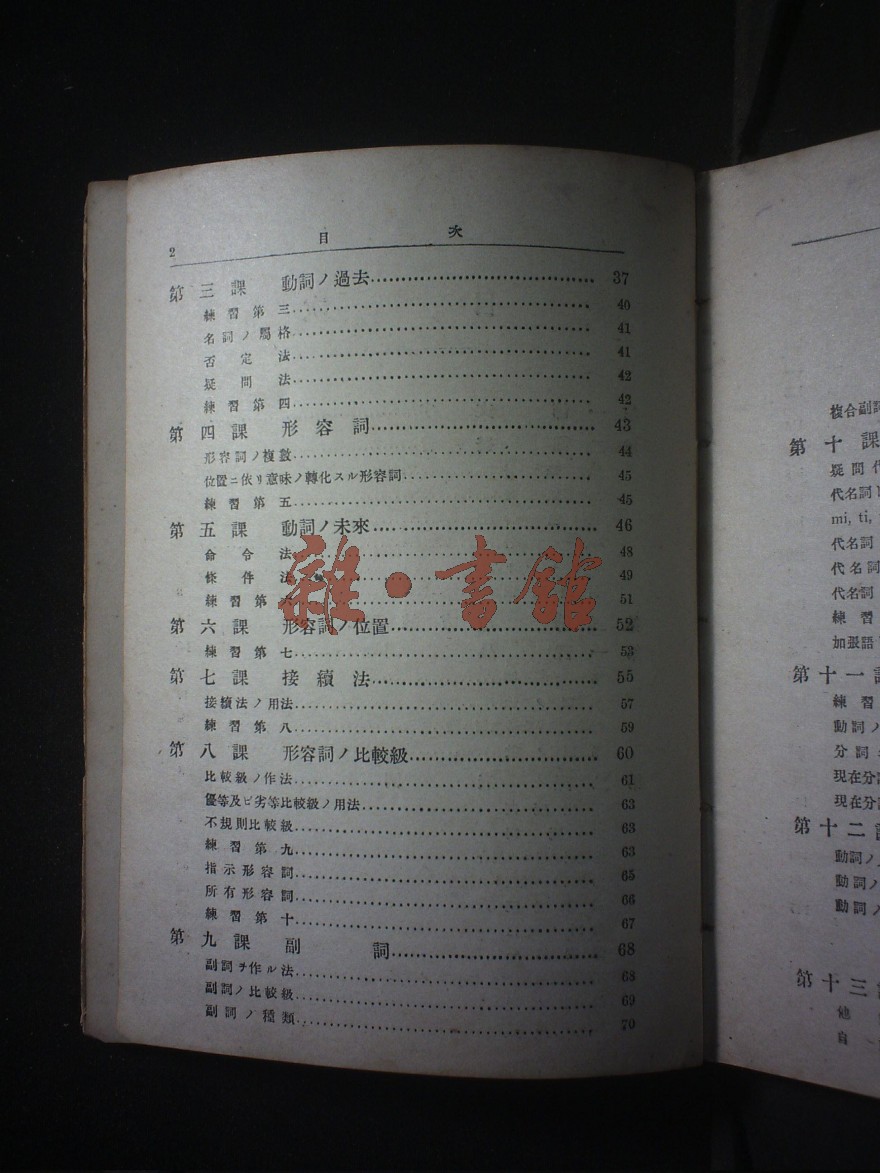 2 目次
第三課 動詞ノ過去 37
練習第三 40
名詞ノ屬格 41
否定法 41
疑問法 42
練習第四 42
第四課 形容詞 43
形容詞ノ複數 44
位置ニ依リ意味ノ轉化スル形容詞 45
練習第五 45
第五課 動詞ノ未來 46
命令法 48
條件法 49
練習第六 51
第六課 形容詞ノ位置 52
練習第七 53
第七課 接續法 55
接續法ノ用法 57
練習第八 59
第八課 形容詞ノ比較級 60
比較級ノ作法 61
優等及ビ劣等比較級ノ用法 63
不規則比較級 63
練習第九 63
指示形容詞 65
所有形容詞 66
練習第十 67
第九課 副詞 68
副詞ヲ作ル法 68
副詞ノ比較級 69
副詞ノ種類 70
雜·書館
複合副詞
第十課
疑問代
代名詞
mi, ti,
代名詞
代名詞
代名詞
練習
加張語
第十一課
練習
動詞ノ
分詞
現在分詞
現在分詞
第十二課
動詞ノ
動詞ノ
動詞ノ
第十三
他
自